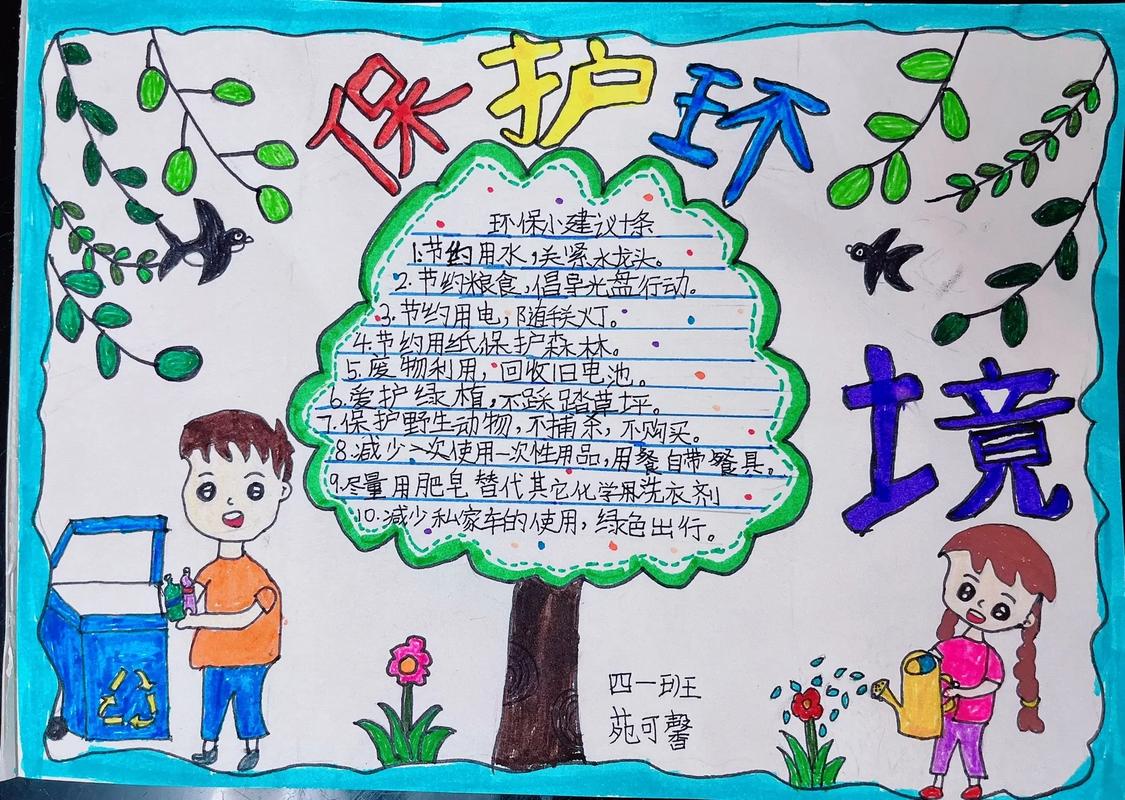 保护环境
环保小建议十条
1.节约用水,关紧水龙头。
2.节约粮食,倡导光盘行动。
3.节约用电,随手关灯。
4.节约用纸保护森林。
5.废物利用,回收旧电池。
6.爱护绿植,不踩踏草坪。
7.保护野生动物,不捕杀,不购买。
8.减少一次使用一次性用品,用餐自带餐具。
9.尽量用肥皂替代其它化学用洗衣剂
10.减少私家车的使用,绿色出行。
四一班
苑可馨